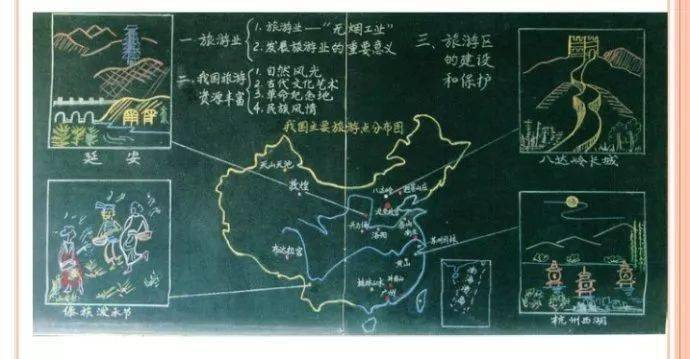 一 旅游业
1. 旅游业——“无烟工业”
2. 发展旅游业的重要意义
二、我国旅游资源丰富
1. 自然风光
2. 古代文化艺术
3. 革命纪念地
4. 民族风情
三、旅游区的建设和保护
我国主要旅游点分布图
延安
八达岭长城
傣族泼水节
杭州西湖
天山天池
敦煌
八达岭
洛阳
泰山
苏州园林
黄山
布达拉宫
桂林山水
广州